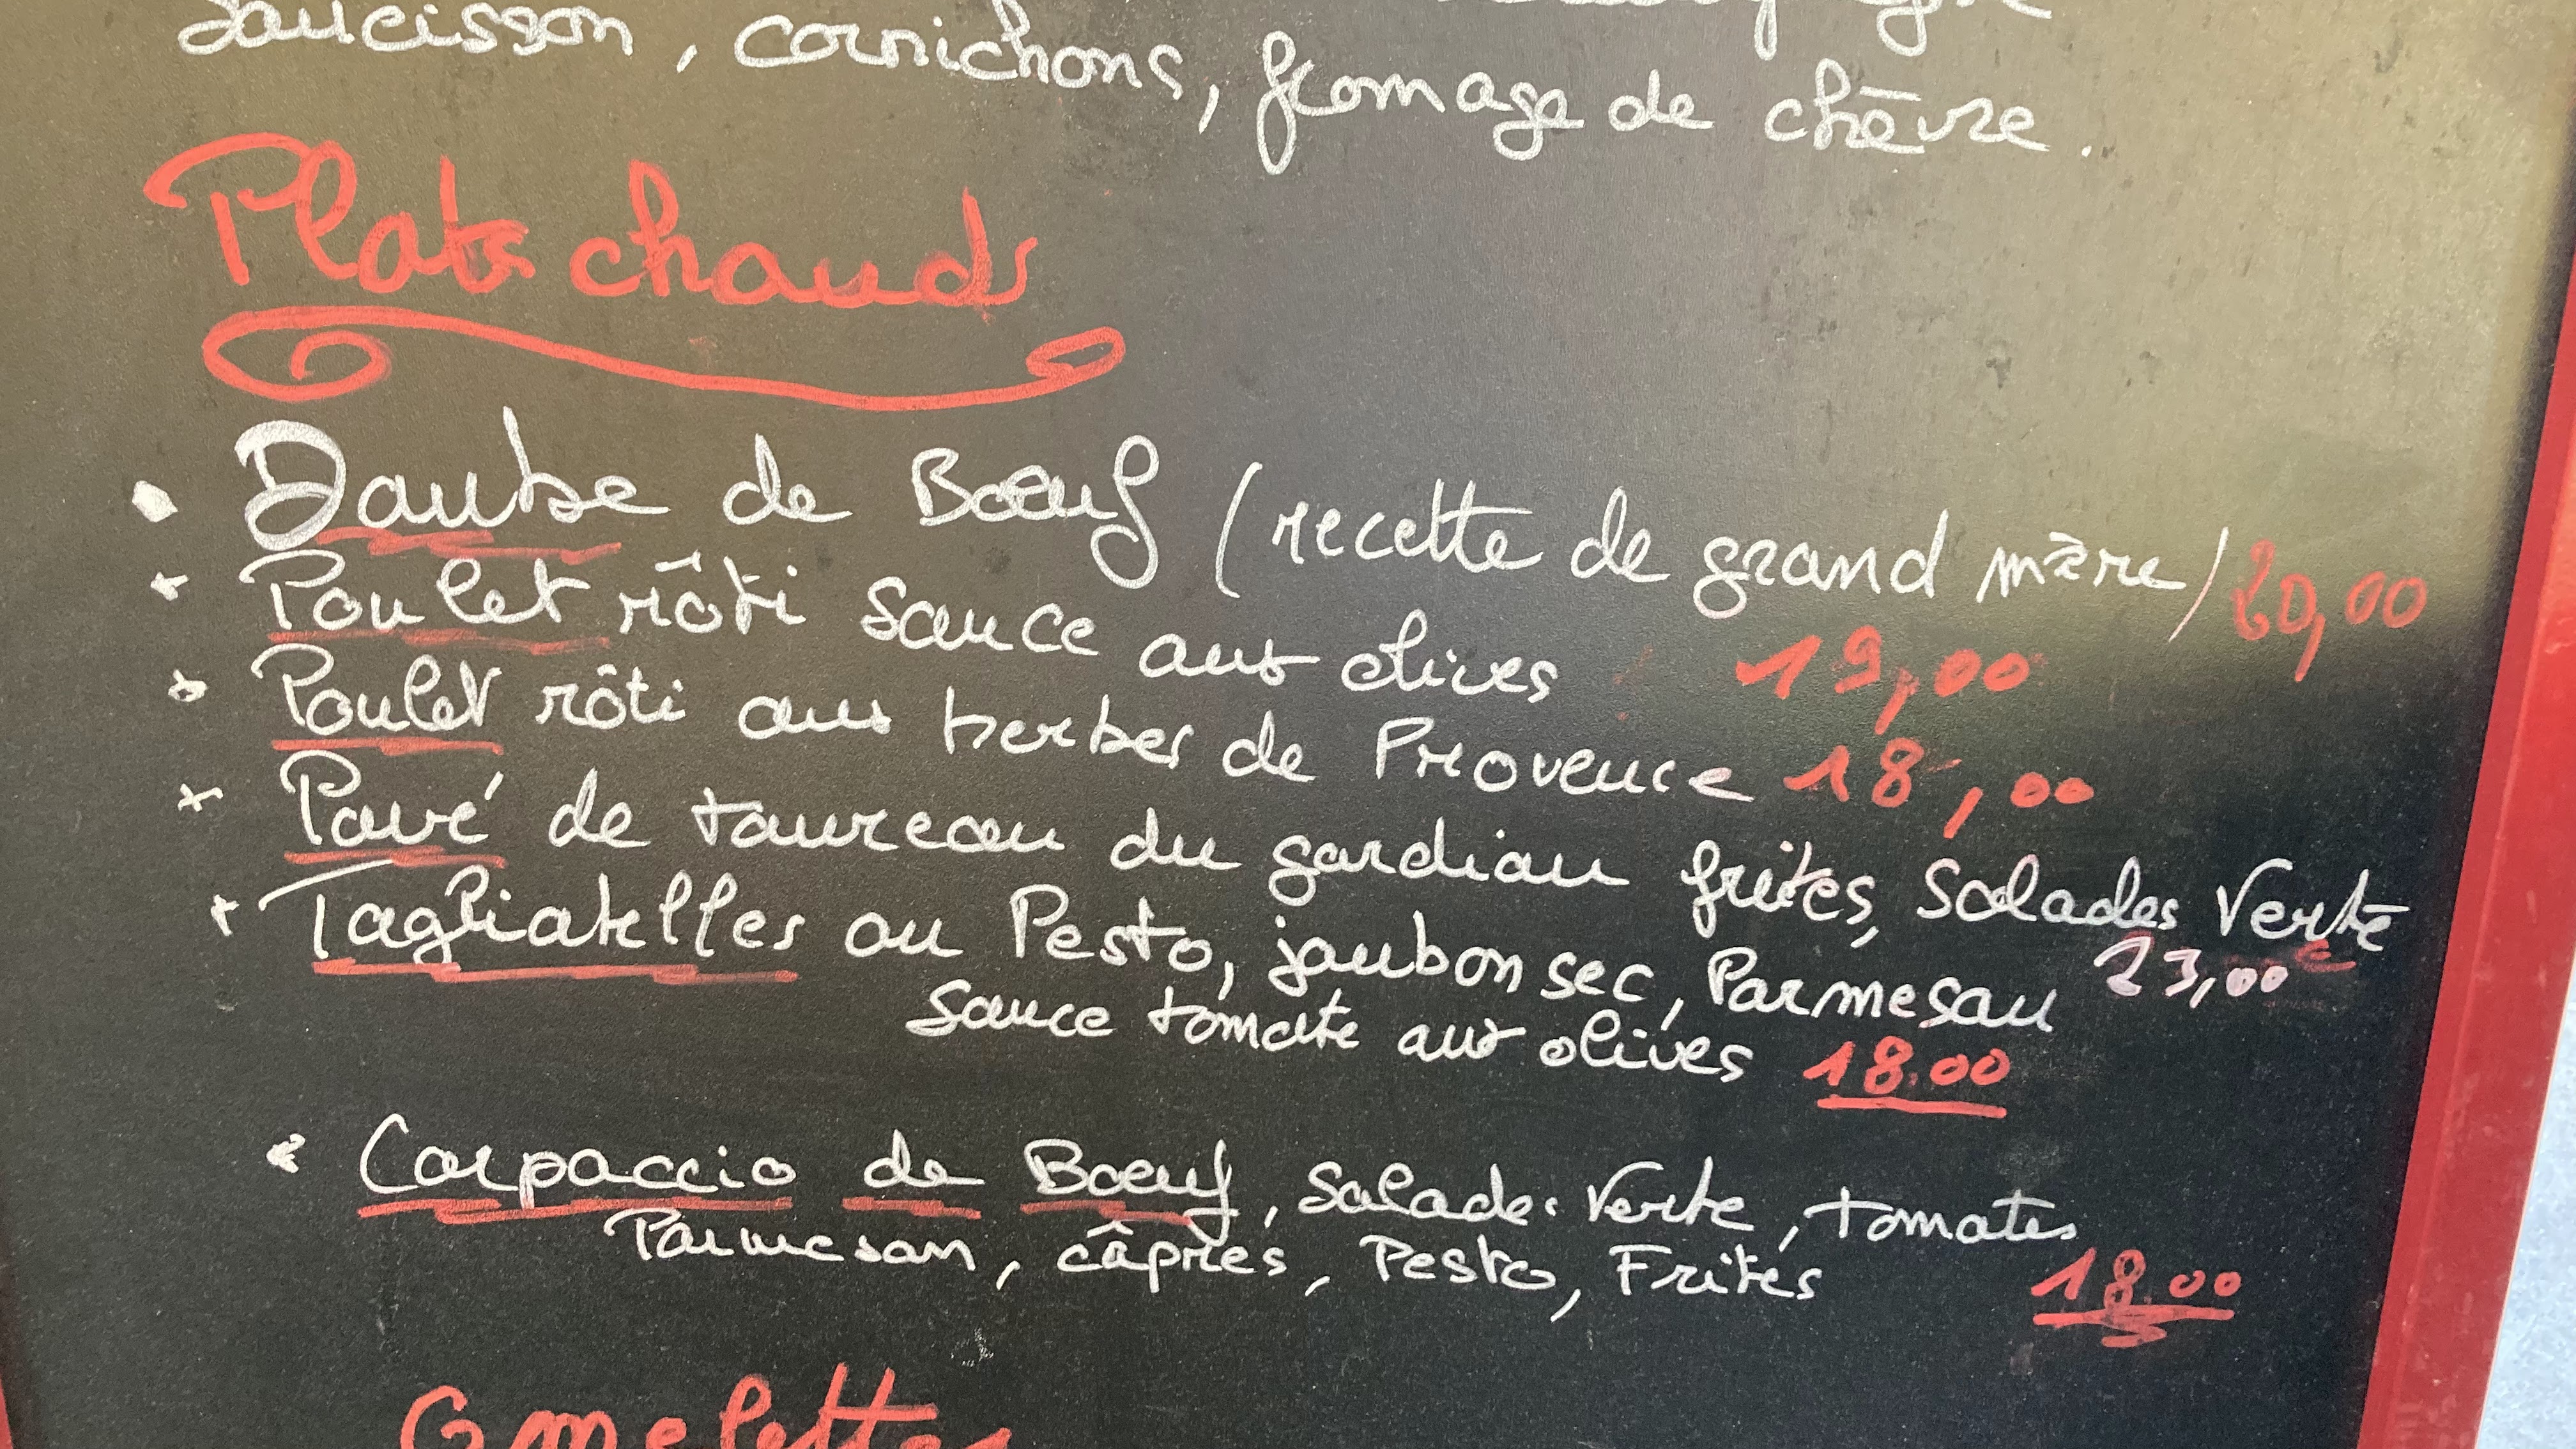 saucisson, cornichons, fromage de chèvre.
Plats chauds
Daube de Bœuf (recette de grand mère) 20,00
Poulet rôti sauce aux olives 19,00
Poulet rôti aux herbes de Provence 18,00
Pavé de taureau du gardian frites, Salades Verte
23,00
Tagliatelles au Pesto, jambon sec, Parmesan
Sauce tomate aux olives 18.00
Carpaccio de Bœuf, Salade Verte, tomates
Parmesan, câpres, Pesto, Frites 18.00
Omelettes